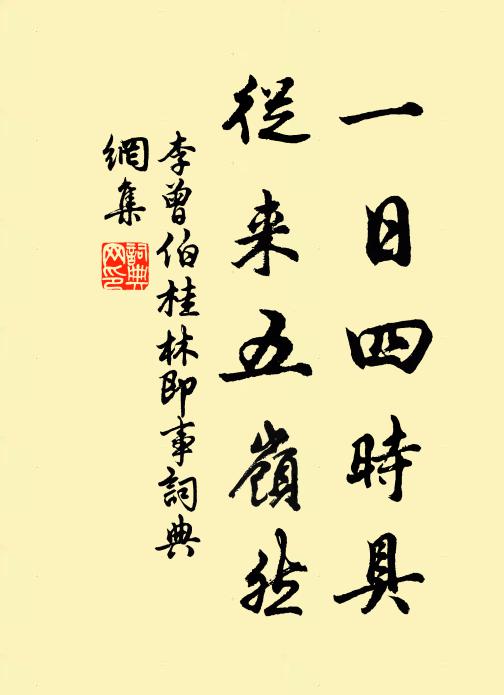 一日四時具
從来五嶺然
李曾伯桂林即事詞典
網集
詞典
网印